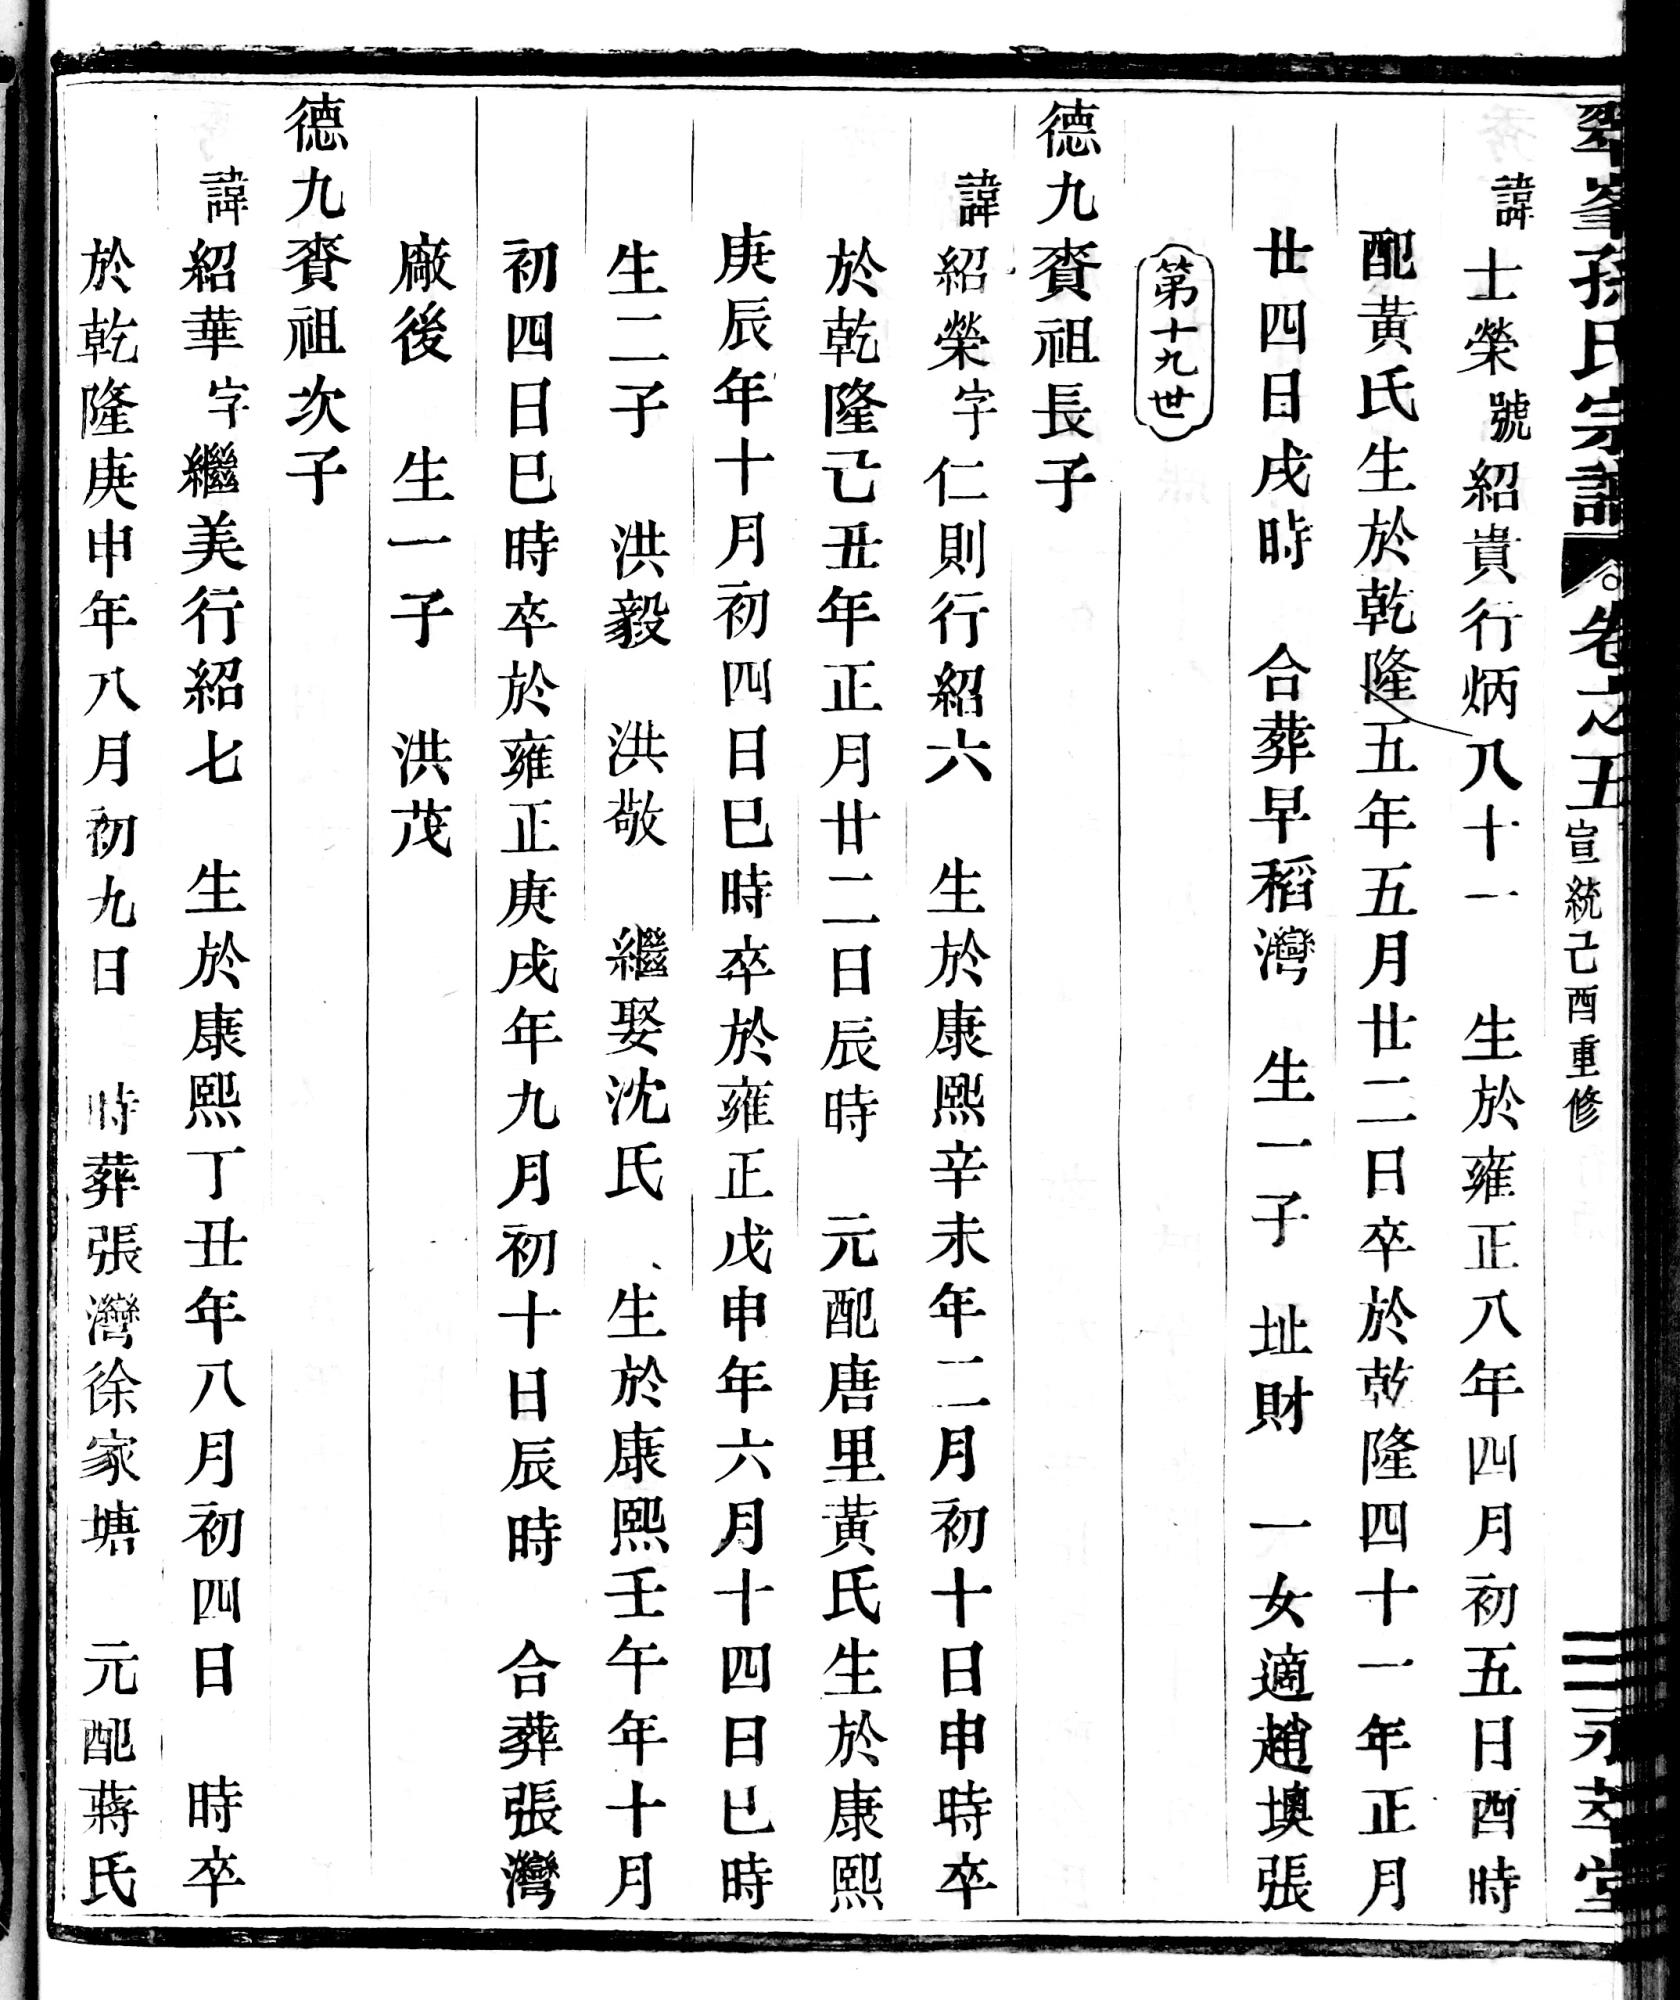 翠峯孫氏宗譜 卷之五 宣統己酉重修 永萃堂
諱士榮號紹貴行炳八十一 生於雍正八年四月初五日酉時
配黃氏生於乾隆五年五月廿二日卒於乾隆四十一年正月
廿四日戌時 合葬早稻灣 生一子 址財 一女適趙墺張
第十九世
德九賚祖長子
諱紹榮字仁則行紹六 生於康熙辛未年二月初十日申時卒
於乾隆己丑年正月廿二日辰時 元配唐里黃氏生於康熙
庚辰年十月初四日巳時卒於雍正戊申年六月十四日巳時
生二子 洪毅 洪敬 繼娶沈氏 生於康熙壬午年十月
初四日巳時卒於雍正庚戌年九月初十日辰時 合葬張灣
廠後 生一子 洪茂
德九賚祖次子
諱紹華字繼美行紹七 生於康熙丁丑年八月初四日 時卒
於乾隆庚申年八月初九日 時葬張灣徐家塘 元配蔣氏